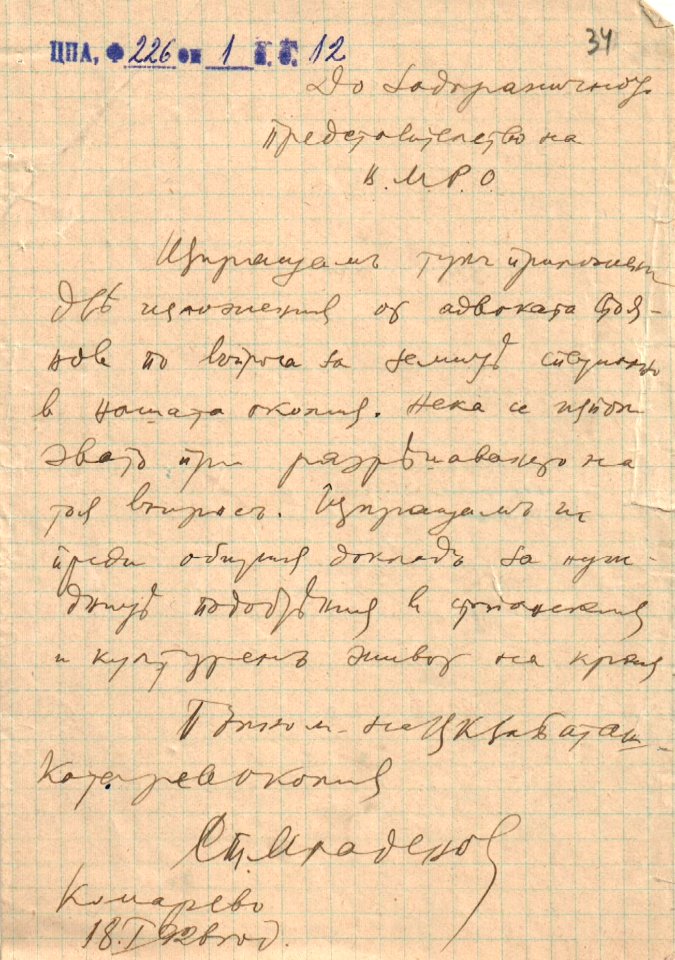 ЦПА, Ф 226 оп 1 а.е. 12
34
До Задграничното
Представителство на
В.М.Р.О.
Изпращамъ тукъ приложени
двѣ изложения от адвоката Стоя-
нов по въпроса за земитѣ специално
в нашата околия. Нека се използ
зватъ при разрѣшаването на
тоя въпросъ. Изпращамъ ги
преди общия докладъ за нуж-
днитѣ подобрѣния в стопанския
и културенъ живот на края
на ЦК за Баташ-
Катаревоколия
Ст. Младенов
Комарево
18.I.92 год.